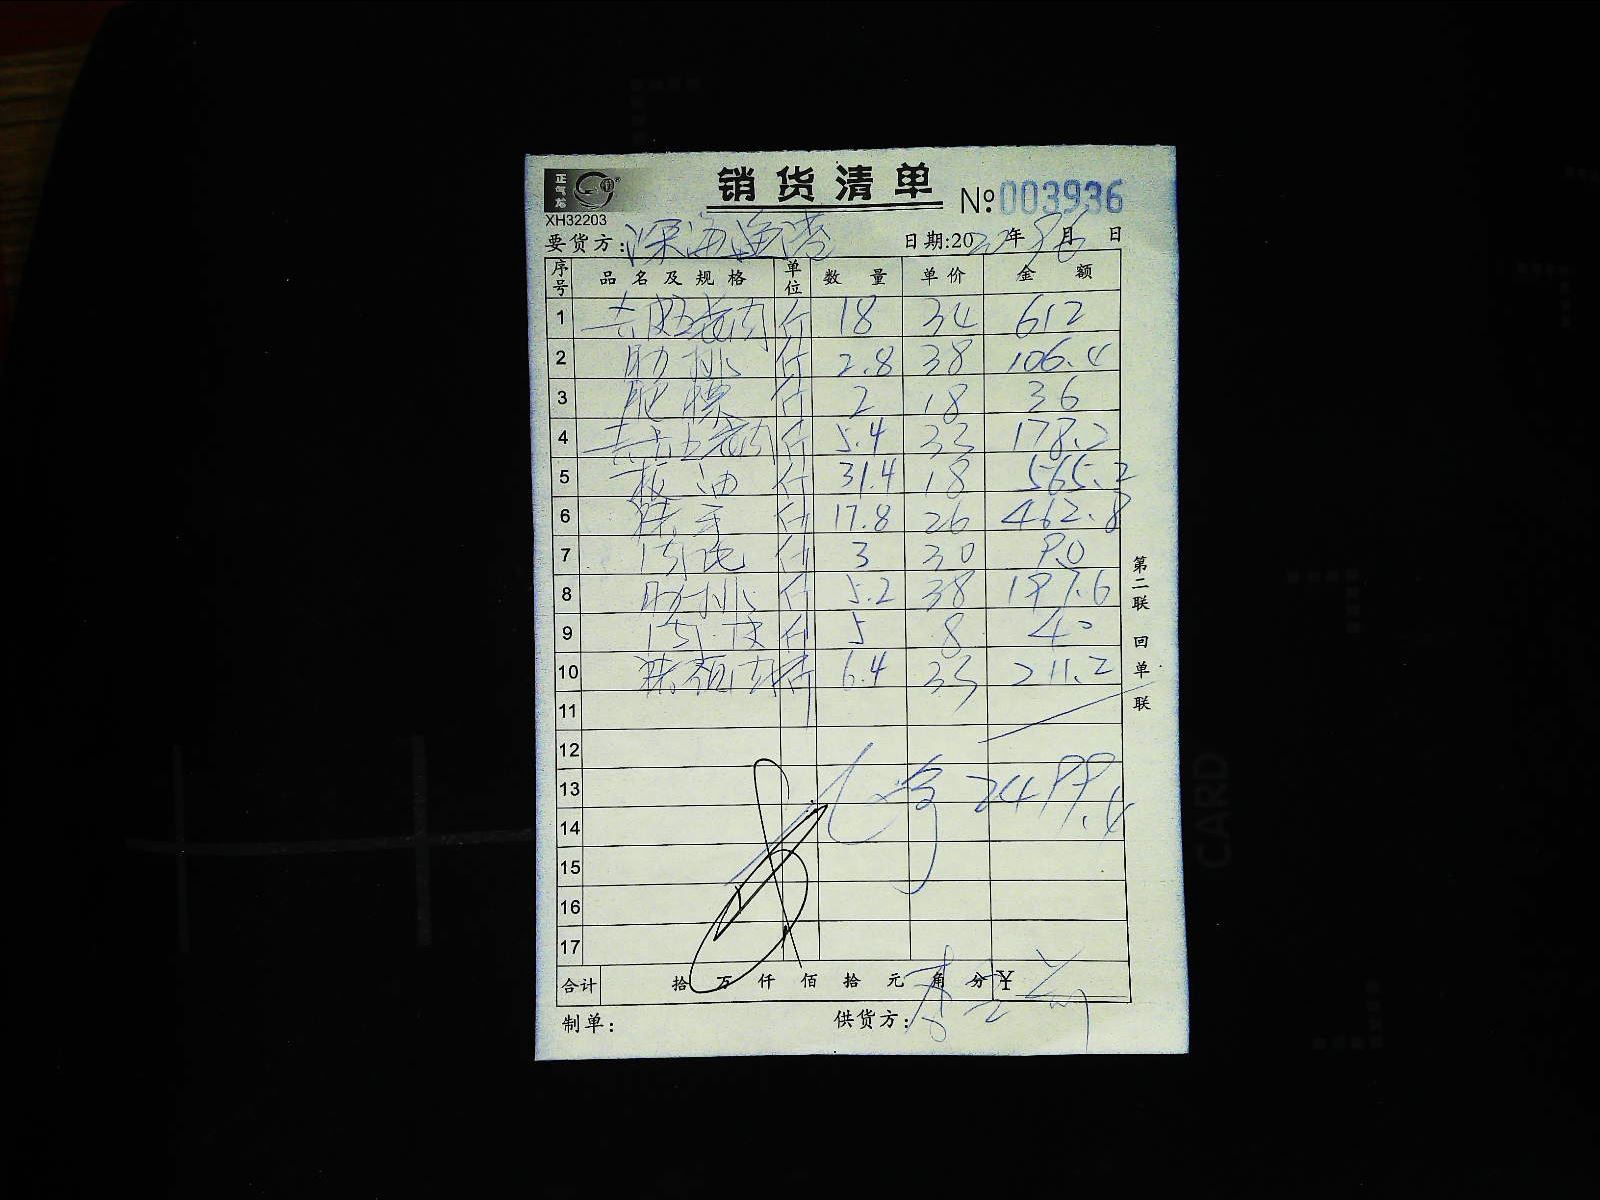 正气龙
销货清单
№003936
XH32203
要货方: 深海渔湾 日期:2022年9月6日
序号 品名及规格 单位 数量 单价 金额
1 去皮五花肉 斤 18 34 612
2 肋排 斤 2.8 38 106.4
3 肥膘 斤 2 18 36
4 去皮五花肉 斤 5.4 33 178.2
5 板油 斤 31.4 18 565.2
6 猪手 斤 17.8 26 462.8
7 斤 3 30 90
8 肋排 斤 5.2 38 197.6
9 斤 5 8 40
10 斤 6.4 33 211.2
11
12
13 2499.4
14
15
16
17
合计 拾 万 仟 佰 拾 元 角 分 ¥
制单: 供货方:
第二联 回单联
CARD